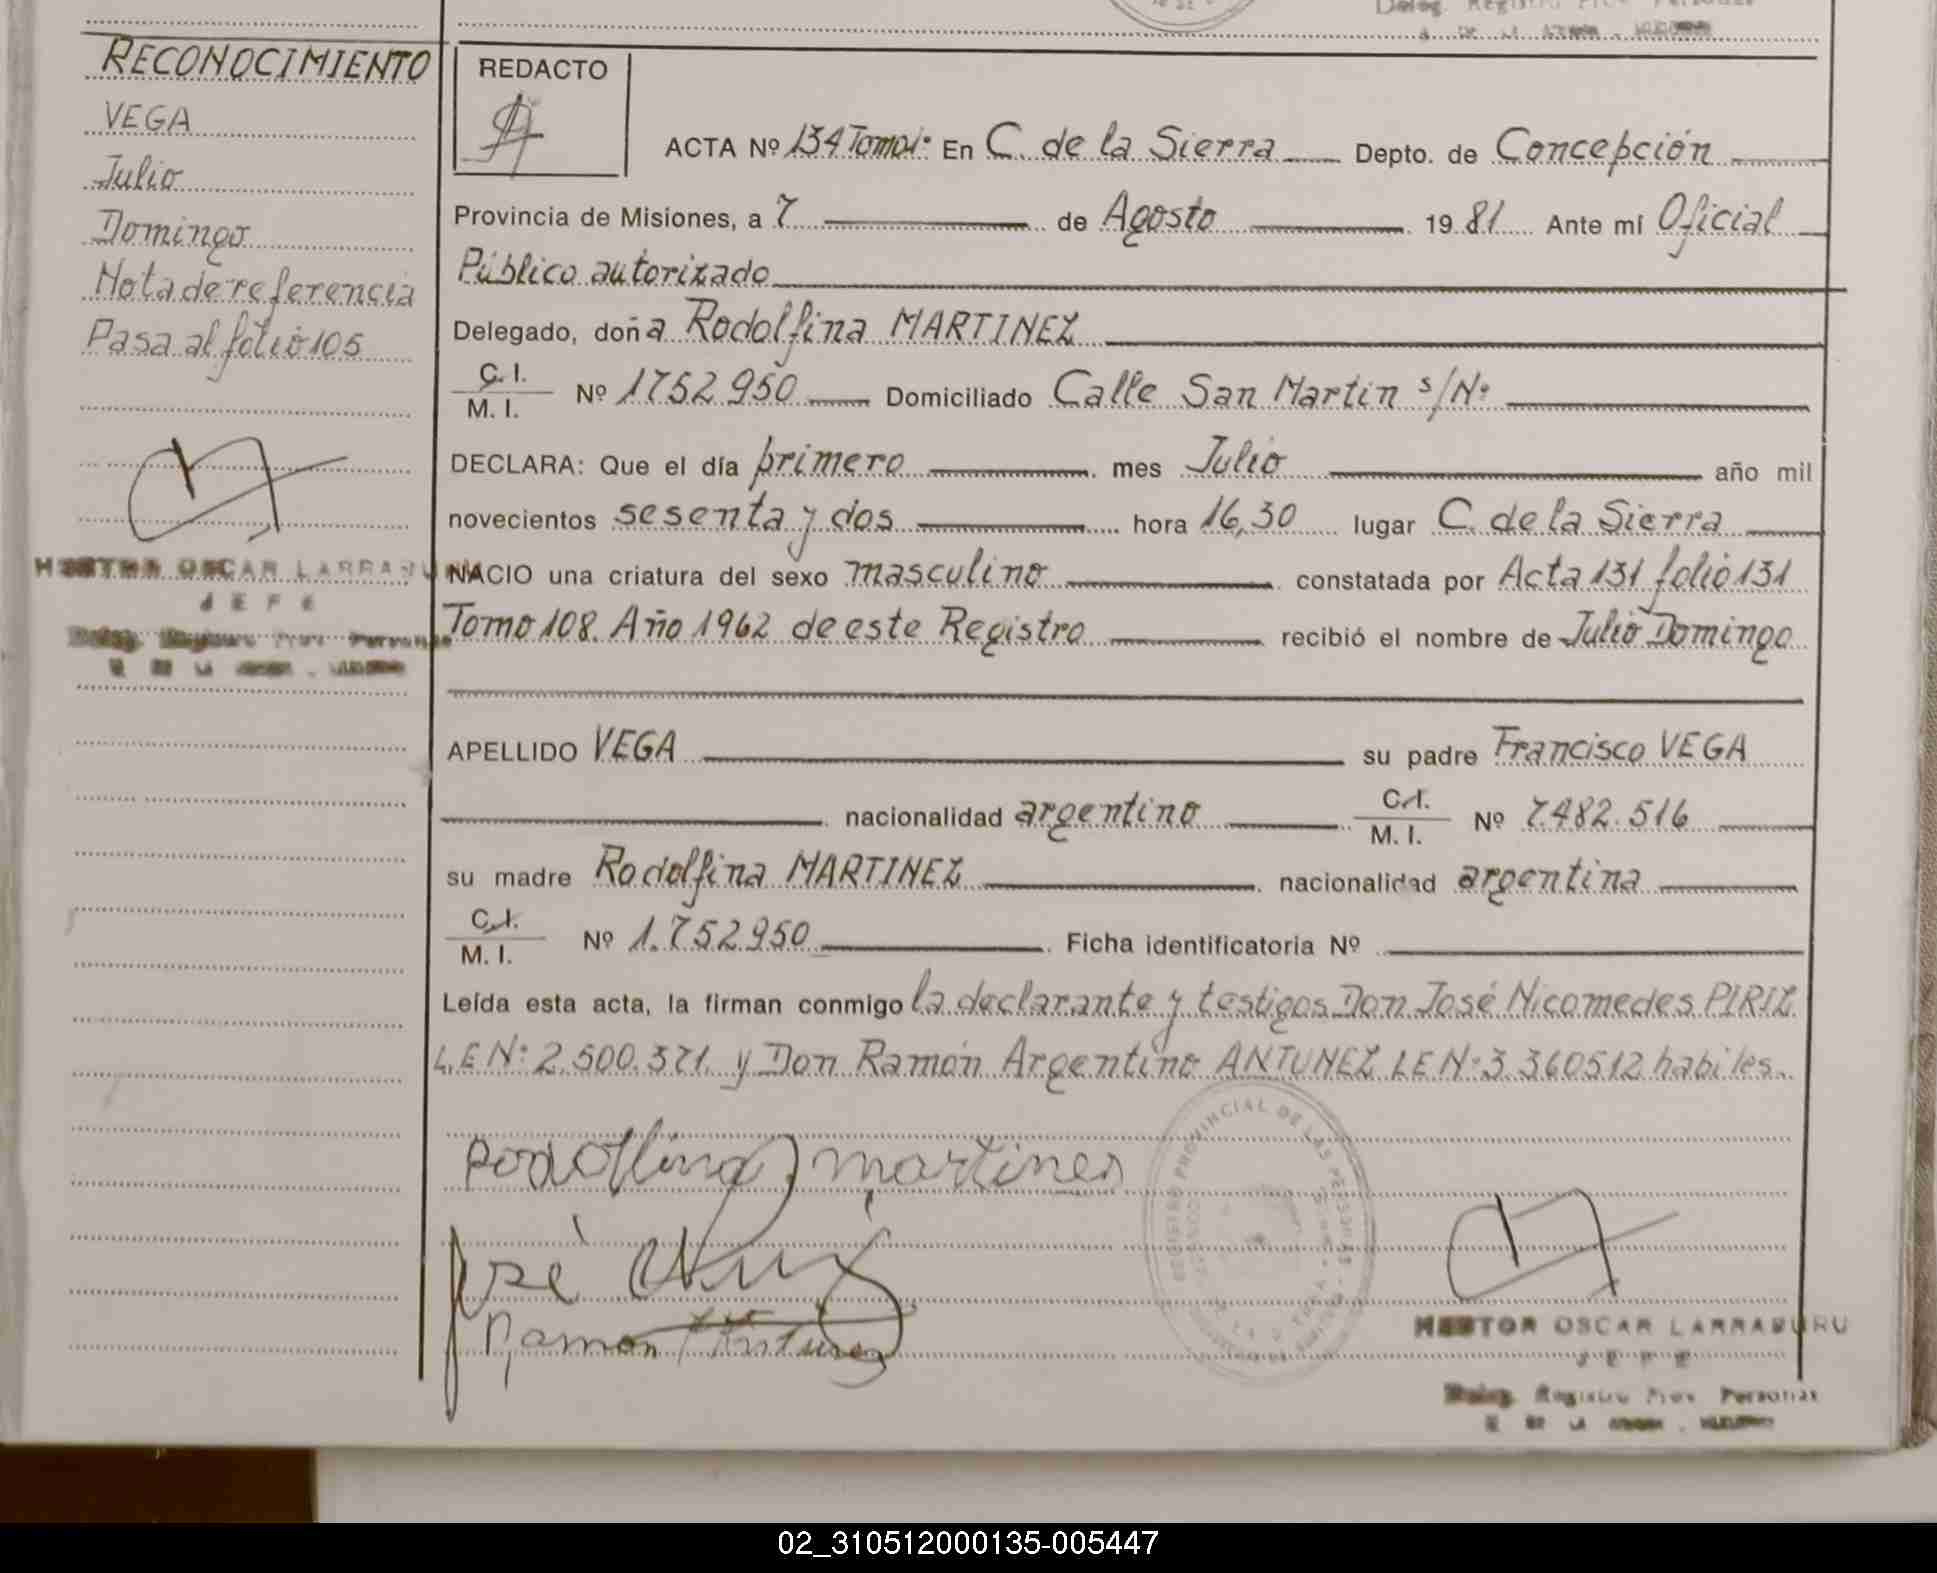 Deleg. Registro Prov. Personas
RECONOCIMIENTO
VEGA
Julio
Domingo
Nota de referencia
Pasa al folio 105
NESTOR OSCAR LARRABURU
JEFE
Deleg. Registro Prov. Personas
REDACTO
ACTA Nº 134 Tomo 1º En C. de la Sierra Depto. de Concepción
Provincia de Misiones, a 7 de Agosto 1981 Ante mí Oficial
Público autorizado
Delegado, doña Rodolfina MARTINEZ
C. I.
M. I. Nº 1752950 Domiciliado Calle San Martin s/Nº
DECLARA: Que el día primero mes Julio año mil
novecientos sesenta y dos hora 16,30 lugar C. de la Sierra
NACIO una criatura del sexo masculino constatada por Acta 131 folio 131
Tomo 108. Año 1962 de este Registro recibió el nombre de Julio Domingo
APELLIDO VEGA su padre Francisco VEGA
nacionalidad argentino C.I. M. I. Nº 7.482.516
su madre Rodolfina MARTINEZ nacionalidad argentina
C.I.
M. I. Nº 1.752950 Ficha identificatoria Nº
Leída esta acta, la firman conmigo la declarante y testigos Don José Nicomedes PIRIZ
L.E Nº: 2.500.371. y Don Ramón Argentino ANTUNEZ L E Nº: 3.360512 habiles.
Rodolfina martines
José
Ramon Antunez
REGISTRO PROVINCIAL DE LAS PERSONAS
NESTOR OSCAR LARRABURU
JEFE
Deleg. Registro Prov. Personas
02_310512000135-005447